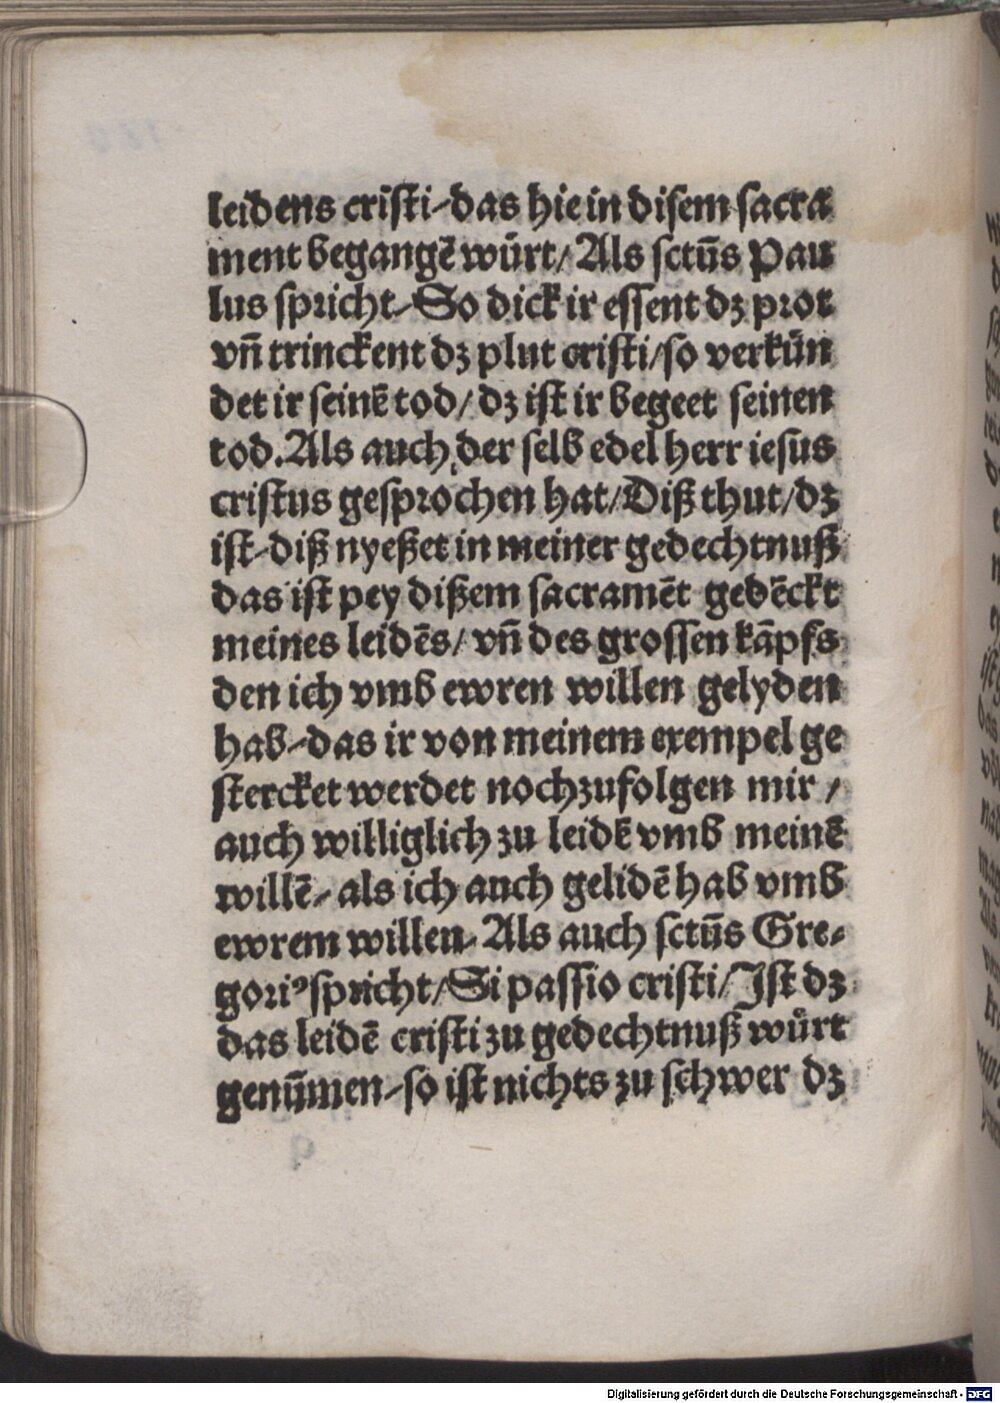 leidens cristi-das hie in disem sacra
ment begangē würt/ Als sctūs Pau
lus spricht-So dick ir essent dz prot
vn̄ trinckent dz plut cristi/so verkün
det ir seinē tod/ dz ist ir begeet seinen
tod. Als auch der selb edel herr iesus
cristus gesprochen hat/Diß thut/dz
ist-diß nyeßet in meiner gedechtnuß
das ist pey dißem sacramēt gedēckt
meines leidēs/ vn̄ des grossen kāpfs
den ich vmb ewren willen gelyden
hab-das ir von meinem exempel ge
stercket werdet nochzufolgen mir /
auch williglich zu leidē vmb meinē
willē- als ich auch gelidē hab vmb
ewrem willen- Als auch sctūs Gre-
goriꝰ spricht/Si passio cristi/Ist dz
das leidē cristi zu gedechtnuß würt
genūmen-so ist nichts zu schwer dz
Digitalisierung gefördert durch die Deutsche Forschungsgemeinschaft - DFG